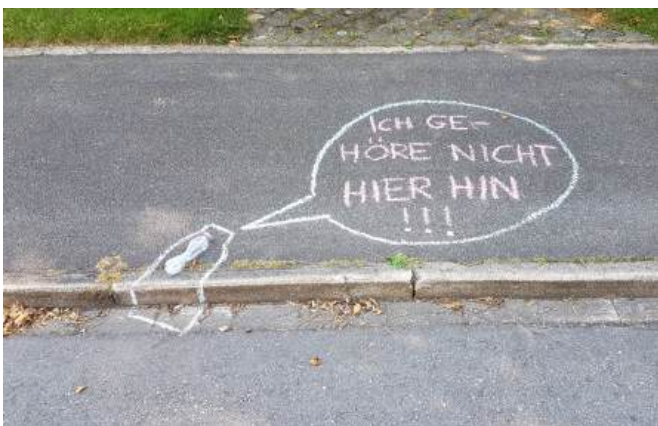 ICH GE-
HÖRE NICHT
HIER HIN
!!!